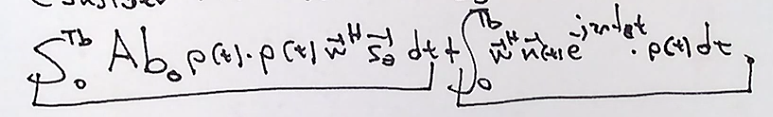 ∫₀^{Tb} A b₀ p(t)·p(t) w⃗^H s⃗_θ dt + ∫₀^{Tb} w⃗^H n⃗(t) e^{-j2πf_c t}·p(t) dt